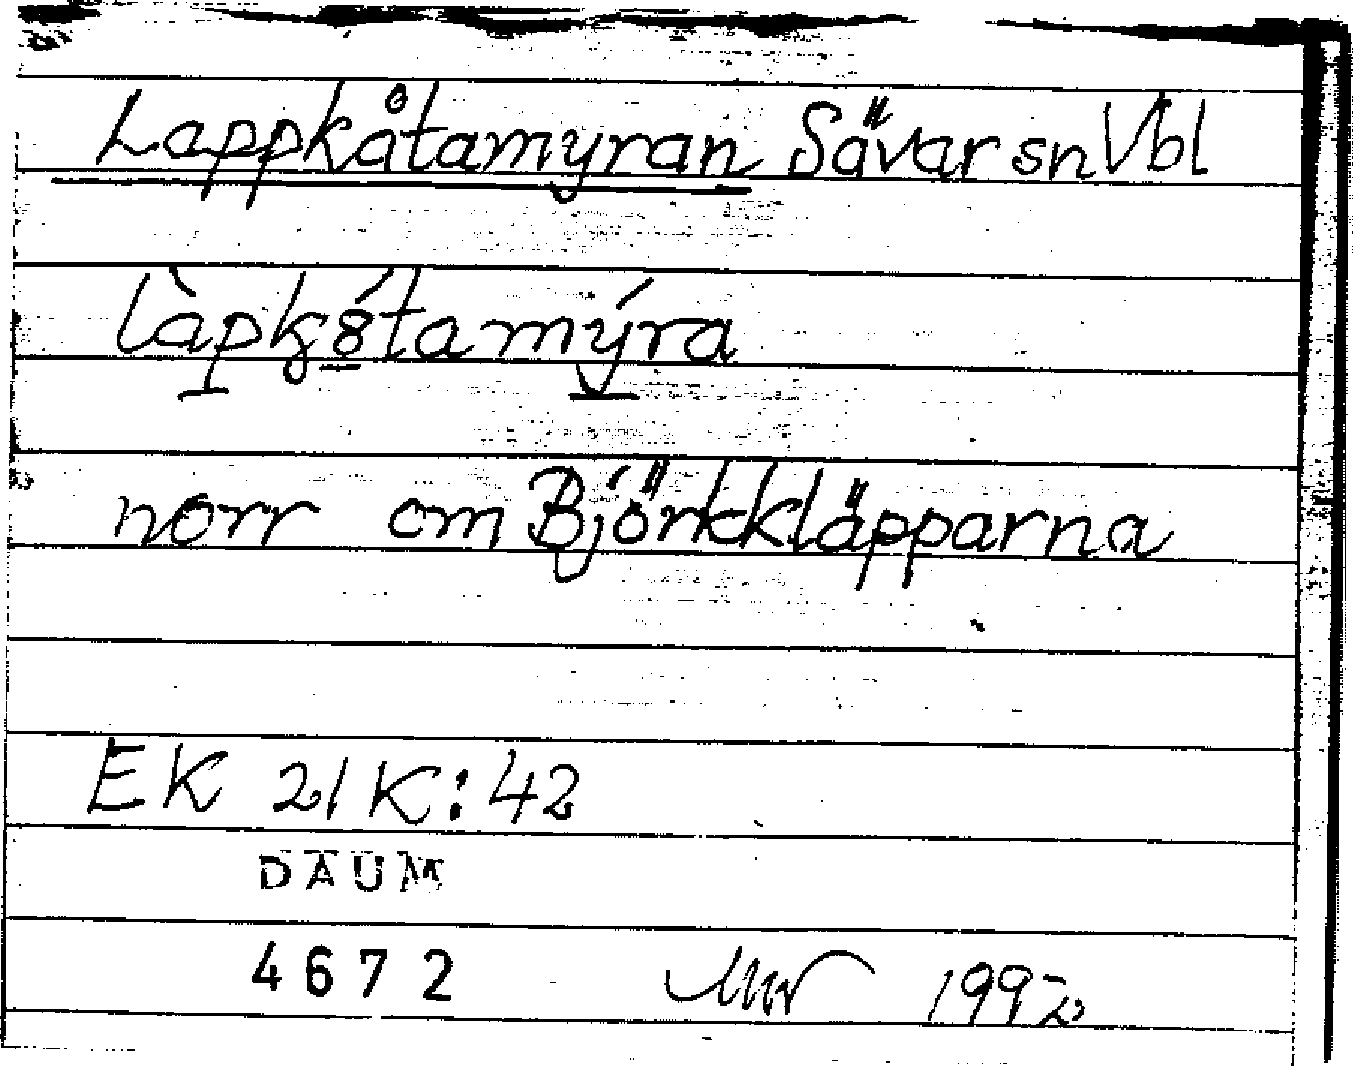 Lappkåtamyran Sävar sn Vbl
làpk8́tamýra
norr om Björkkläpparna
EK 21K:42
DAUM
4672 1992